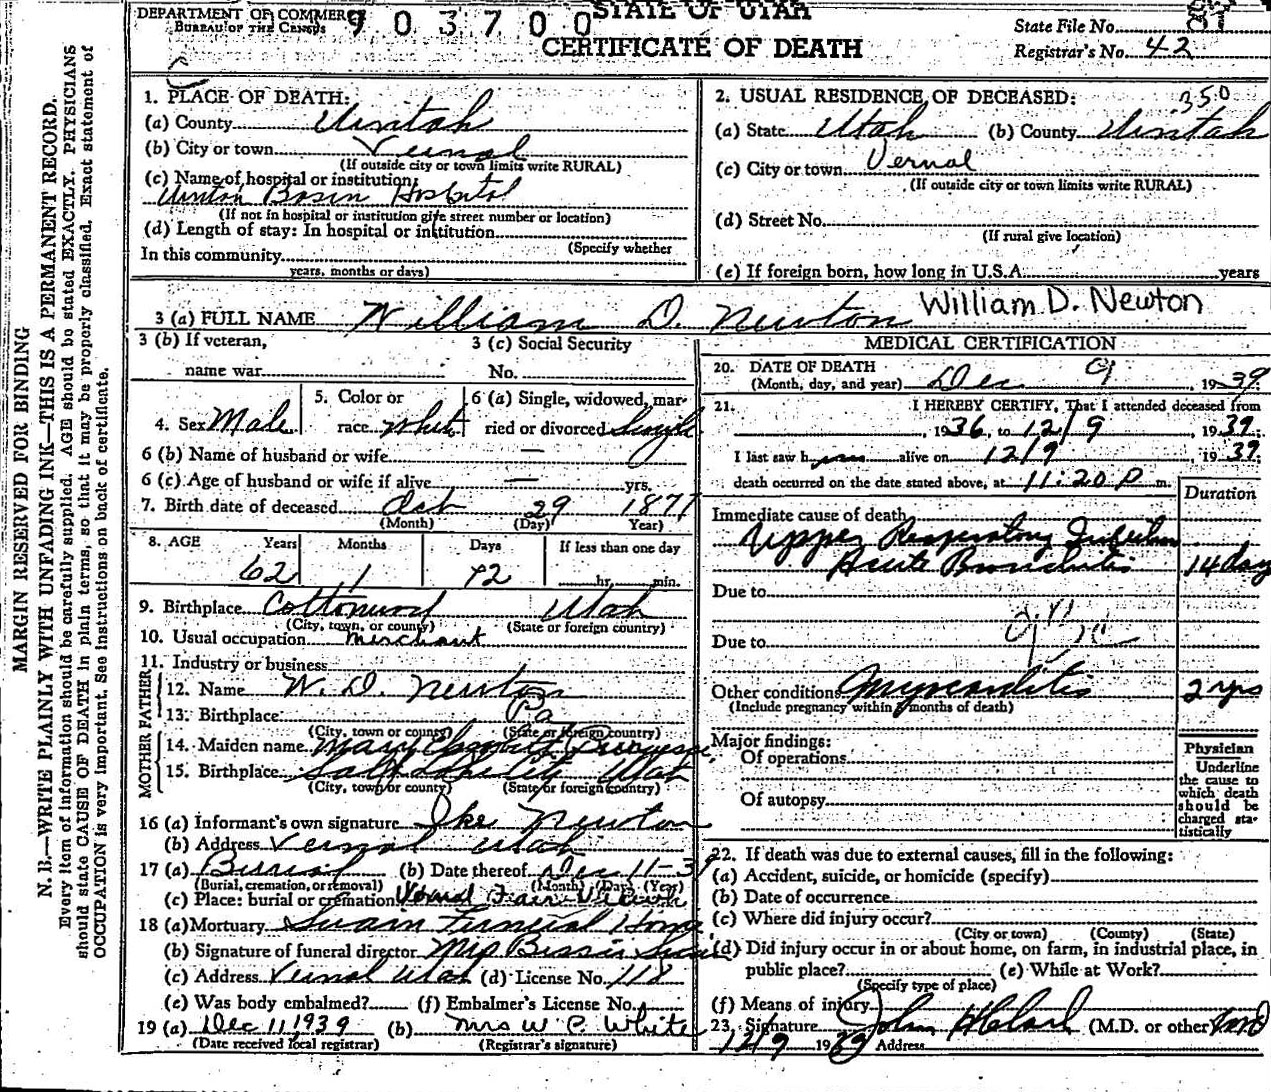 MARGIN RESERVED FOR BINDING
N. B.—WRITE PLAINLY WITH UNFADING INK—THIS IS A PERMANENT RECORD.
Every item of information should be carefully supplied. AGE should be stated EXACTLY. PHYSICIANS
should state CAUSE OF DEATH in plain terms, so that it may be properly classified. Exact statement of
OCCUPATION is very important. See instructions on back of certificate.
DEPARTMENT OF COMMERCE
BUREAU OF THE CENSUS
903700
STATE OF UTAH
CERTIFICATE OF DEATH
State File No.
Registrar's No. 42
1. PLACE OF DEATH:
(a) County Uintah
(b) City or town Vernal
(If outside city or town limits write RURAL)
(c) Name of hospital or institution:
Uintah Basin Hospital
(If not in hospital or institution give street number or location)
(d) Length of stay: In hospital or institution
(Specify whether
In this community
years, months or days)
2. USUAL RESIDENCE OF DECEASED: 350
(a) State Utah (b) County Uintah
(c) City or town Vernal
(If outside city or town limits write RURAL)
(d) Street No.
(If rural give location)
(e) If foreign born, how long in U.S.A. years
3 (a) FULL NAME William D. Newton William D. Newton
3 (b) If veteran,
name war
3 (c) Social Security
No.
4. Sex Male
5. Color or
race White
6 (a) Single, widowed, mar-
ried or divorced Single
6 (b) Name of husband or wife —
6 (c) Age of husband or wife if alive — yrs.
7. Birth date of deceased Oct 29 1877
(Month) (Day) (Year)
8. AGE Years Months Days If less than one day
62 1 12 hr. min.
9. Birthplace Cottonwood Utah
(City, town, or county) (State or foreign country)
10. Usual occupation Merchant
11. Industry or business
FATHER
12. Name W. D. Newton
13. Birthplace Pa
(City, town or county) (State or foreign country)
MOTHER
14. Maiden name Mary Elizabeth
15. Birthplace Salt Lake City Utah
(City, town or county) (State or foreign country)
16 (a) Informant's own signature Ike Newton
(b) Address Vernal Utah
17 (a) Burial (b) Date thereof Dec 11-39
(Burial, cremation, or removal) (Month) (Day) (Year)
(c) Place: burial or cremation Vernal Fair View
18 (a) Mortuary Swain Funeral Home
(b) Signature of funeral director Mrs Bessie Swain
(c) Address Vernal Utah (d) License No. 118
(e) Was body embalmed? (f) Embalmer's License No.
19 (a) Dec 11, 1939 (b) Mrs W. P. White
(Date received local registrar) (Registrar's signature)
MEDICAL CERTIFICATION
20. DATE OF DEATH
(Month, day, and year) Dec 9, 1939
21. I HEREBY CERTIFY, That I attended deceased from
, 1936, to 12/9, 1939.
I last saw him alive on 12/9, 1939.
death occurred on the date stated above, at 11:20 P m.
Duration
Immediate cause of death
Upper Respiratory Infection
Acute Bronchitis 14 day
Due to
Due to
Other conditions Myocarditis 2 yrs
(Include pregnancy within 3 months of death)
Major findings:
Of operations
Of autopsy
Physician
Underline
the cause to
which death
should be
charged sta-
tistically
22. If death was due to external causes, fill in the following:
(a) Accident, suicide, or homicide (specify)
(b) Date of occurrence
(c) Where did injury occur?
(City or town) (County) (State)
(d) Did injury occur in or about home, on farm, in industrial place, in
public place? (e) While at Work?
(Specify type of place)
(f) Means of injury
23. Signature John H Clark (M.D. or other) MD
12/9 1939 Address